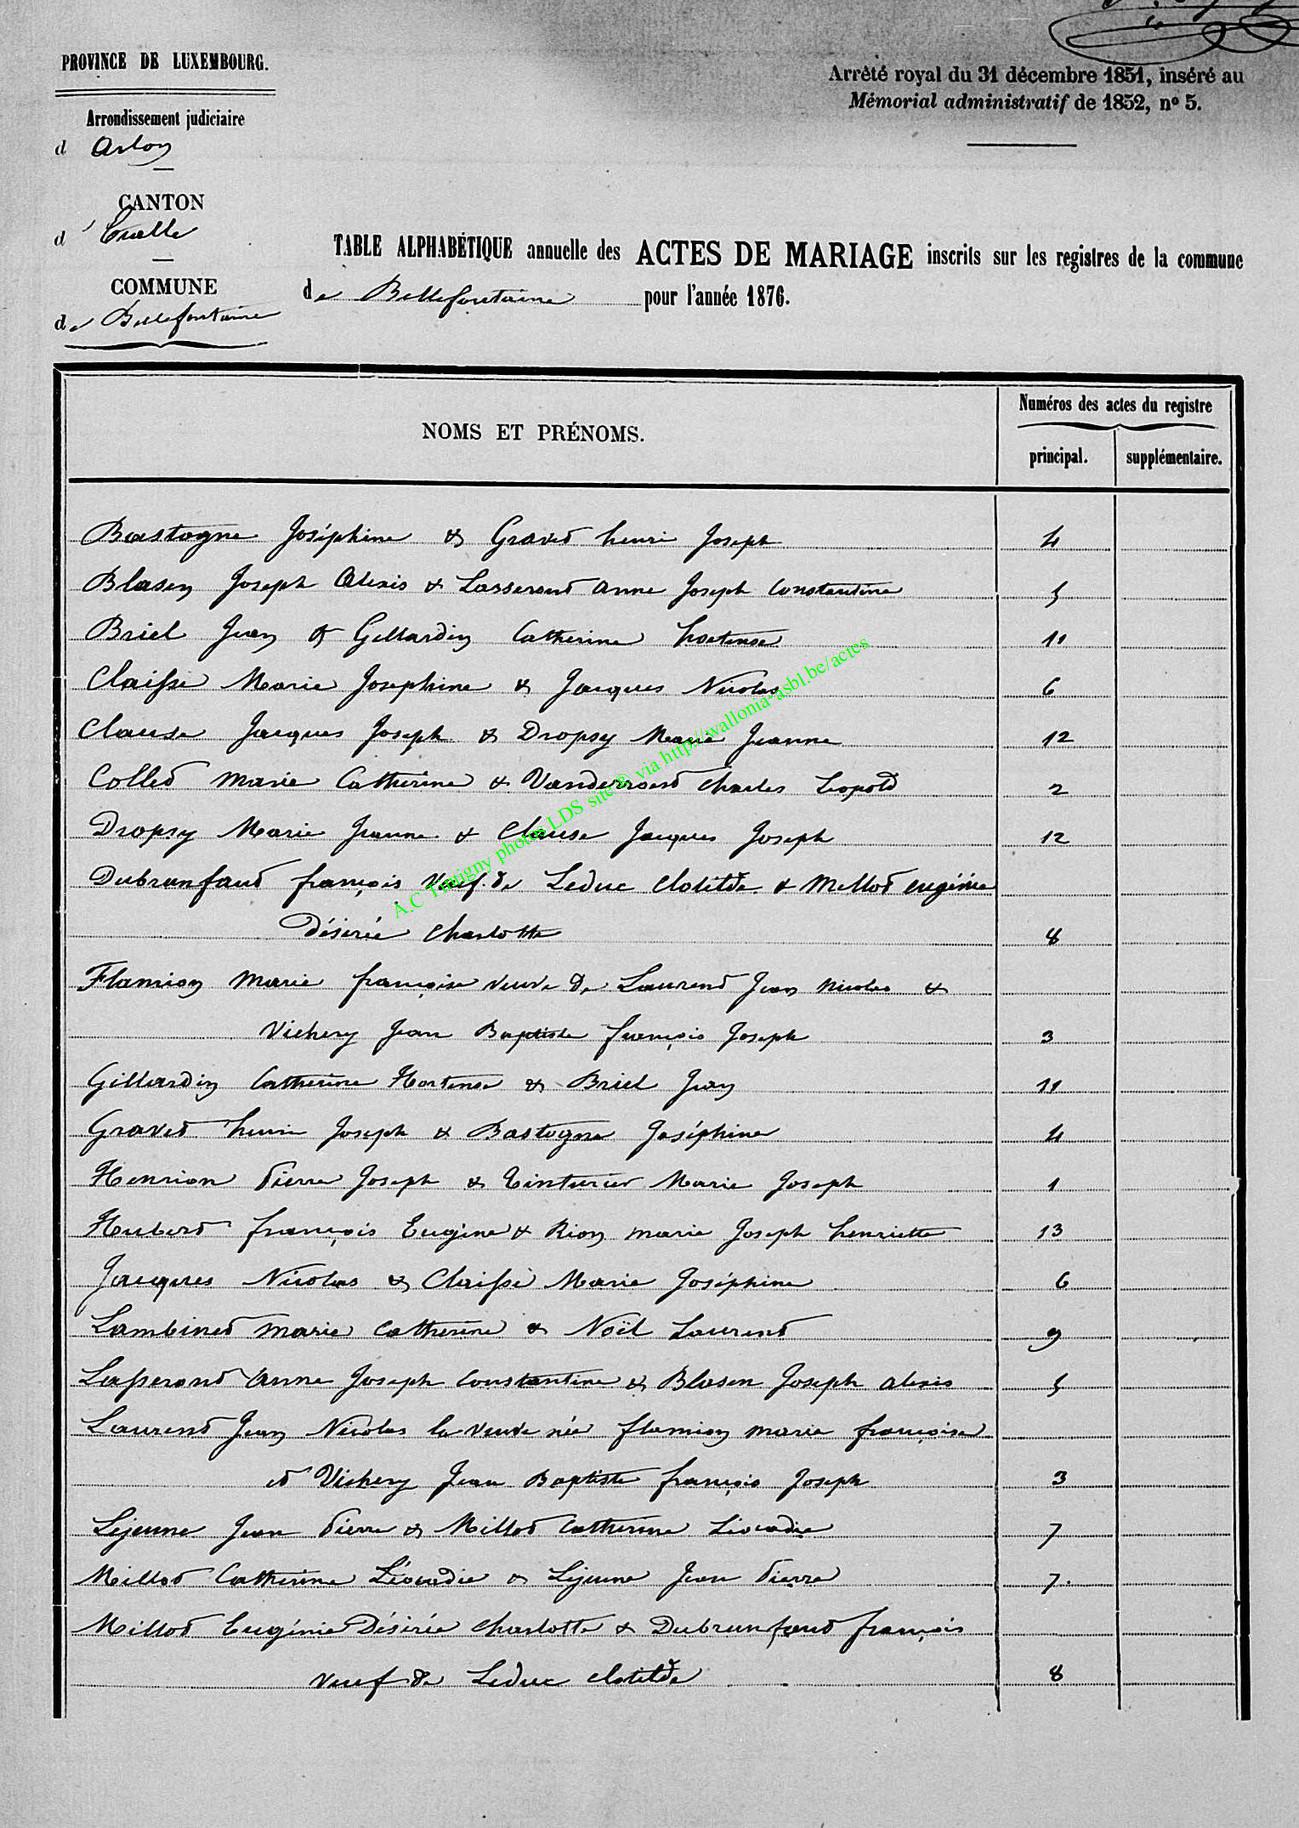 PROVINCE DE LUXEMBOURG.
Arrêté royal du 31 décembre 1851, inséré au
Mémorial administratif de 1852, nº 5.
Arrondissement judiciaire
d Arlon
CANTON
d' Etalle
COMMUNE
de Bellefontaine
TABLE ALPHABÉTIQUE annuelle des ACTES DE MARIAGE inscrits sur les registres de la commune
de Bellefontaine pour l'année 1876.
NOMS ET PRÉNOMS.
Numéros des actes du registre
principal. supplémentaire.
Bastogne Joséphine & Gravet henri Joseph 4
Blasen Joseph Alexis & Lasserout Anne Joseph Constantine 5
Briel Jean & Gillardin Catherine hortense 11
Claisse Marie Josephine & Jacques Nicolas 6
Clause Jacques Joseph & Dropsy Marie Jeanne 12
Collet Marie Catherine & Charles Léopold 2
Dropsy Marie Jeanne & Clause Jacques Joseph 12
Dubrunfaut françois Veuf de Leduc Clotilde & Millot eugénie
Désirée Charlotte 8
Flamion Marie françoise veuve de Laurent Jean Nicolas &
Vichery Jean Baptiste françois Joseph 3
Gillardin Catherine Hortense & Briel Jean 11
Gravet henri Joseph & Bastogne Joséphine 4
Henrion Pierre Joseph & Tinturier Marie Joseph 1
Hubert françois Eugène & Rion marie Joseph henriette 13
Jacques Nicolas & Claisse Marie Joséphine 6
Lambinet Marie Catherine & Noël Laurent 9
Lasserout Anne Joseph Constantine & Blasen Joseph Alexis 5
Laurent Jean Nicolas la veuve née flamion marie françoise
et Vichery Jean Baptiste françois Joseph 3
Lejeune Jean Pierre & Millot Catherine Léocadie 7
Millot Catherine Léocadie & Lejeune Jean Pierre 7.
Millot Eugénie Désirée Charlotte & Dubrunfaut françois
veuf de Leduc Clotilde 8
A.C Tintigny photos LDS site © via http://wallonia-asbl.be/actes